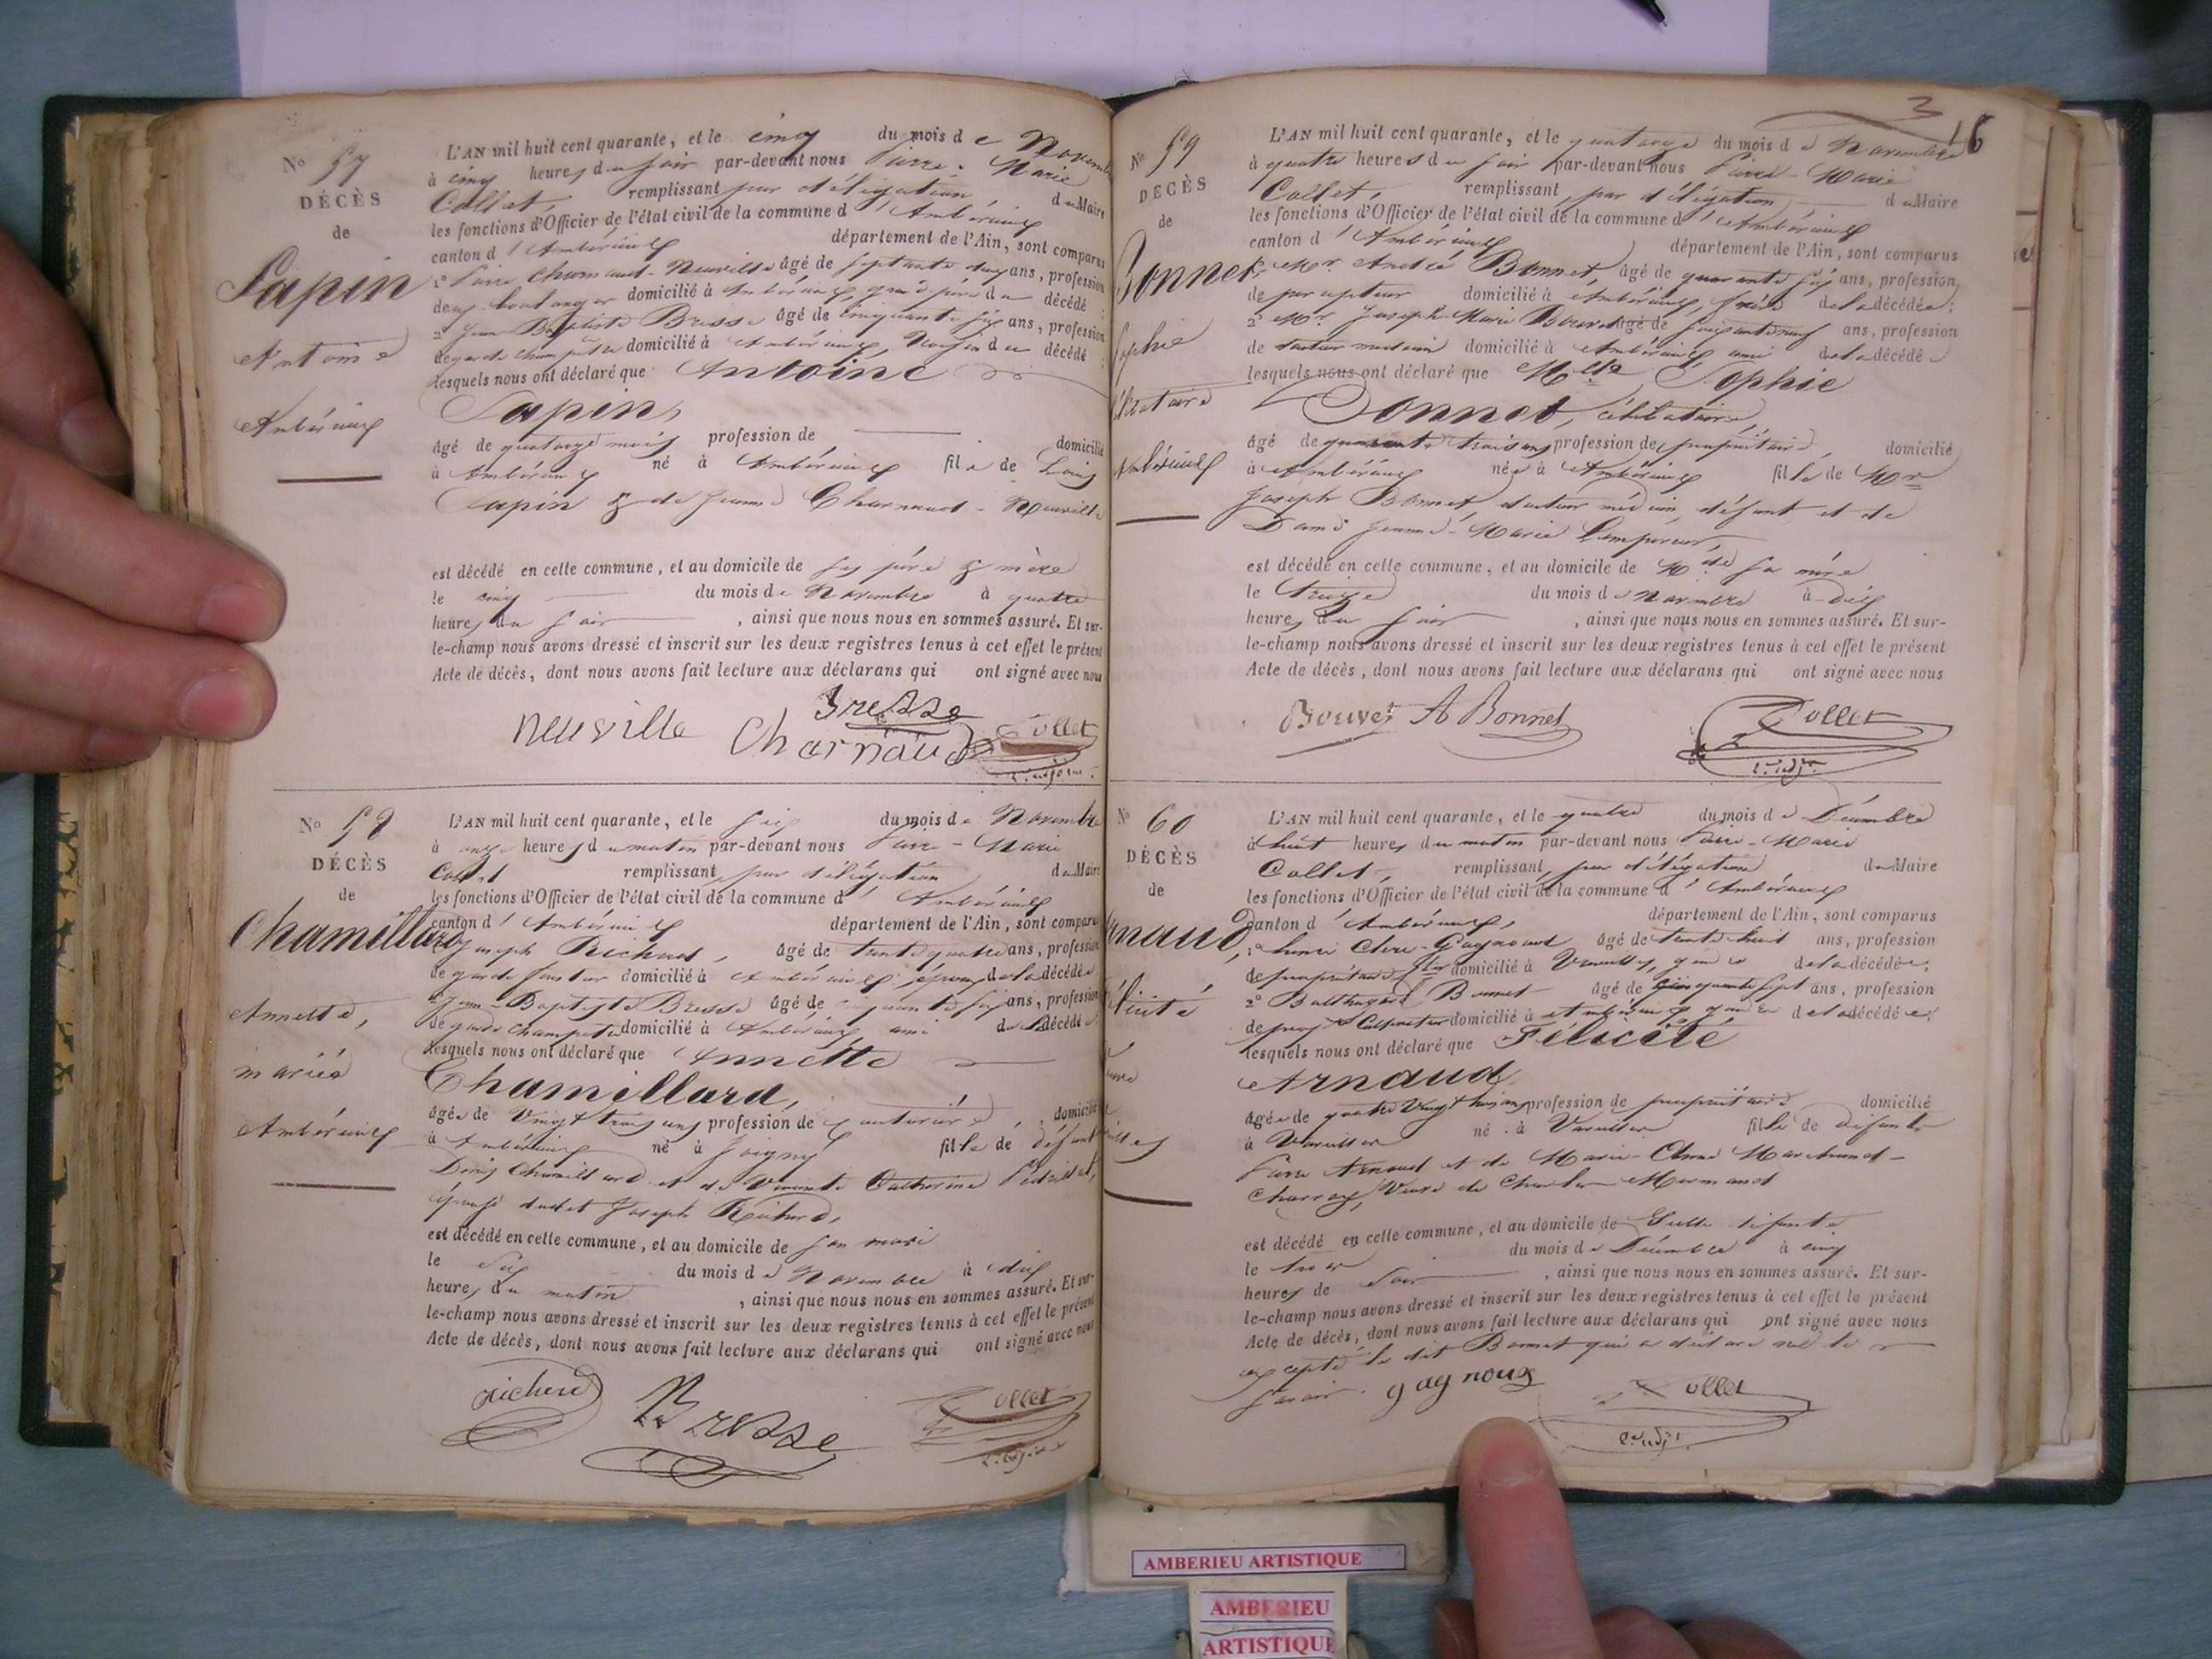 No 57
DÉCÈS
de
Lapin
Antoine
Ambérieux
L'AN mil huit cent quarante, et le cinq du mois de Novembre
à cinq heures du soir par-devant nous Pierre-Marie
Collet, remplissant par délégation du Maire
les fonctions d'Officier de l'état civil de la commune d'Ambérieux
canton d'Ambérieux département de l'Ain, sont comparus
1o Pierre Charnaud-Neuville âgé de septante deux ans, profession
de boulanger domicilié à Ambérieux, grand père du décédé ;
2o Jean Baptiste Bresse âgé de cinquante six ans, profession
de garde champêtre domicilié à Ambérieux, voisin du décédé ;
lesquels nous ont déclaré que Antoine
Lapin,
âgé de quatorze mois profession de domicilié
à Ambérieux né à Ambérieux fils de Louis
Lapin & de Jeanne Charnaud-Neuville
est décédé en cette commune, et au domicile de ses père & mère
le cinq du mois de Novembre à quatre
heures du soir, ainsi que nous nous en sommes assuré. Et sur-
le-champ nous avons dressé et inscrit sur les deux registres tenus à cet effet le présent
Acte de décès, dont nous avons fait lecture aux déclarans qui ont signé avec nous
Bresse
Neuville Charnaud Collet
No 58
DÉCÈS
de
Chamillard
Annette,
mariée
Ambérieux
L'AN mil huit cent quarante, et le six du mois de Novembre
à onze heures du matin par-devant nous Pierre-Marie
Collet remplissant par délégation du Maire
les fonctions d'Officier de l'état civil de la commune d'Ambérieux
canton d'Ambérieux département de l'Ain, sont comparus
1o Joseph Richard, âgé de trente quatre ans, profession
de garde domicilié à Ambérieux, époux de la décédée
2o Jean-Baptiste Bresse âgé de cinquante six ans, profession
de garde champêtre domicilié à Ambérieux, ami de la décédée
lesquels nous ont déclaré que Annette
Chamillard,
âgée de vingt trois ans profession de couturière, domicilié
à Ambérieux né à Joigny fille de défunt
Denis Chamillard et de Catherine
épouse dudit Joseph Richard,
est décédé en cette commune, et au domicile de son mari
le six du mois de Novembre à dix
heures du matin, ainsi que nous nous en sommes assuré. Et sur-
le-champ nous avons dressé et inscrit sur les deux registres tenus à cet effet le présent
Acte de décès, dont nous avons fait lecture aux déclarans qui ont signé avec nous
Richard Bresse Collet
3
16
No 59
DÉCÈS
de
Bonnet
Sophie
Ambérieux
L'AN mil huit cent quarante, et le quatorze du mois de Novembre
à quatre heures du soir par-devant nous Pierre-Marie
Collet, remplissant, par délégation du Maire
les fonctions d'Officier de l'état civil de la commune d'Ambérieux
canton d'Ambérieux département de l'Ain, sont comparus
1o Mr. André Bonnet, âgé de quarante six ans, profession
de percepteur domicilié à Ambérieux, frère de la décédée ;
2o Mr. Joseph-Marie Bouvet âgé de soixante neuf ans, profession
de docteur medecin domicilié à Ambérieux ami de la décédée
lesquels nous ont déclaré que Melle Sophie
Bonnet, célibataire,
âgé de quarante trois ans profession de propriétaire, domicilié
à Ambérieux née à Ambérieux fille de Mr
Joseph Bonnet, docteur médecin, défunt et de
Dame Jeanne-Marie Lempereur,
est décédé en cette commune, et au domicile de sa mère
le treize du mois de Novembre à dix
heures du soir, ainsi que nous nous en sommes assuré. Et sur-
le-champ nous avons dressé et inscrit sur les deux registres tenus à cet effet le présent
Acte de décès, dont nous avons fait lecture aux déclarans qui ont signé avec nous
Bouvet A Bonnet Collet
No 60
DÉCÈS
de
L'AN mil huit cent quarante, et le quatre du mois de Décembre
à huit heures du matin par-devant nous Pierre-Marie
Collet, remplissant, par délégation du Maire
les fonctions d'Officier de l'état civil de la commune d'Ambérieux
canton d'Ambérieux, département de l'Ain, sont comparus
1o âgé de trente huit ans, profession
de propriétaire domicilié à de la décédée ;
2o Balthazard Bonnet âgé de cinquante sept ans, profession
de cultivateur domicilié à Ambérieux de la décédée ;
lesquels nous ont déclaré que Félicité
Arnaud
âgée de quatre vingt trois ans profession de propriétaire domicilié
à né à fille de défunts
Pierre Arnaud et de Marie-Anne Marchand-
Charray, Veuve de Charles Mermand
est décédé en cette commune, et au domicile de défunte
le trois du mois de Décembre à cinq
heures de soir, ainsi que nous nous en sommes assuré. Et sur-
le-champ nous avons dressé et inscrit sur les deux registres tenus à cet effet le présent
Acte de décès, dont nous avons fait lecture aux déclarans qui ont signé avec nous
excepté le dit Bonnet qui a déclaré ne le
savoir. gagnoux Collet
AMBERIEU ARTISTIQUE
AMBERIEU
ARTISTIQUE